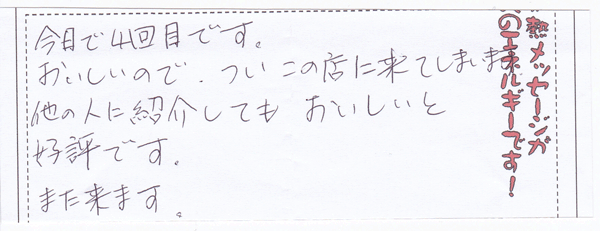 今日で4回目です。
おいしいので、ついこの店に来てしまいます
他の人に紹介しても おいしいと
好評です。
また来ます。
熱メッセージが
のエネルギーです!